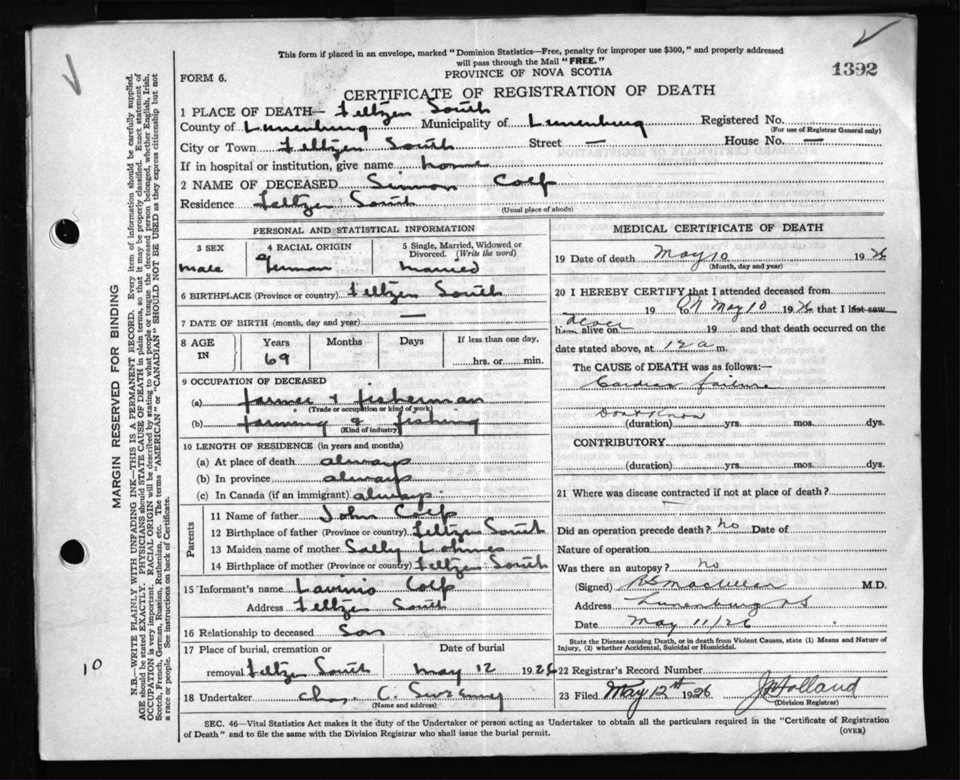 This form if placed in an envelope, marked "Dominion Statistics—Free, penalty for improper use $300," and properly addressed
will pass through the Mail "FREE."
FORM 6.
PROVINCE OF NOVA SCOTIA
1392
CERTIFICATE OF REGISTRATION OF DEATH
1 PLACE OF DEATH— Feltzen South
County of Lunenburg Municipality of Lunenburg Registered No.
(For use of Registrar General only)
City or Town Feltzen South Street — House No. —
If in hospital or institution, give name home
2 NAME OF DECEASED Simon Colp
Residence Feltzen South
(Usual place of abode)
PERSONAL AND STATISTICAL INFORMATION
3 SEX 4 RACIAL ORIGIN 5 Single, Married, Widowed or
Divorced. (Write the word)
male German married
6 BIRTHPLACE (Province or country) Feltzen South
7 DATE OF BIRTH (month, day and year) —
8 AGE Years Months Days If less than one day,
IN 69 hrs. or min.
9 OCCUPATION OF DECEASED
(a) farmer & fisherman
(Trade or occupation or kind of work)
(b) farming & fishing
(Kind of industry)
10 LENGTH OF RESIDENCE (in years and months)
(a) At place of death always
(b) In province always
(c) In Canada (if an immigrant) always
Parents
11 Name of father John Colp
12 Birthplace of father (Province or country) Feltzen South
13 Maiden name of mother Sally Lohnes
14 Birthplace of mother (Province or country) Feltzen South
15 Informant's name Lavinio Colp
Address Feltzen South
16 Relationship to deceased Son
17 Place of burial, cremation or Date of burial
removal Feltzen South May 12 1926
18 Undertaker Chas. C.
(Name and address)
MEDICAL CERTIFICATE OF DEATH
19 Date of death May 10 1926
(Month, day and year)
20 I HEREBY CERTIFY that I attended deceased from
19 to May 10 1926 that I last saw
him alive on 19 and that death occurred on
date stated above, at 12 a m.
The CAUSE of DEATH was as follows:—
Cardiac failure
Don't know
(duration) yrs. mos. dys.
CONTRIBUTORY
(duration) yrs. mos. dys.
21 Where was disease contracted if not at place of death?
—
Did an operation precede death? No Date of
Nature of operation
Was there an autopsy? No
(Signed) M.D.
Address Lunenburg NS
Date May 11/26
State the Disease causing Death, or in death from Violent Causes, state (1) Means and Nature of
Injury, (2) whether Accidental, Suicidal or Homicidal.
22 Registrar's Record Number
23 Filed May 12th 1926 J Holland
(Division Registrar)
SEC. 46—Vital Statistics Act makes it the duty of the Undertaker or person acting as Undertaker to obtain all the particulars required in the "Certificate of Registration
of Death" and to file the same with the Division Registrar who shall issue the burial permit.
(OVER)
MARGIN RESERVED FOR BINDING
N.B.—WRITE PLAINLY WITH UNFADING INK—THIS IS A PERMANENT RECORD. Every item of information should be carefully supplied.
AGE should be stated EXACTLY. PHYSICIANS should STATE CAUSE OF DEATH in plain terms, so that it may be properly classified. Exact statement of
OCCUPATION is very important. RACIAL ORIGIN will be described by stating to what people or tongue the deceased person belonged, whether English, Irish,
Scotch, French, German, Russian, Ruthenian, etc. The terms "AMERICAN" or "CANADIAN" SHOULD NOT BE USED as they express citizenship but not
a race or people. See instructions on back of Certificate.
10